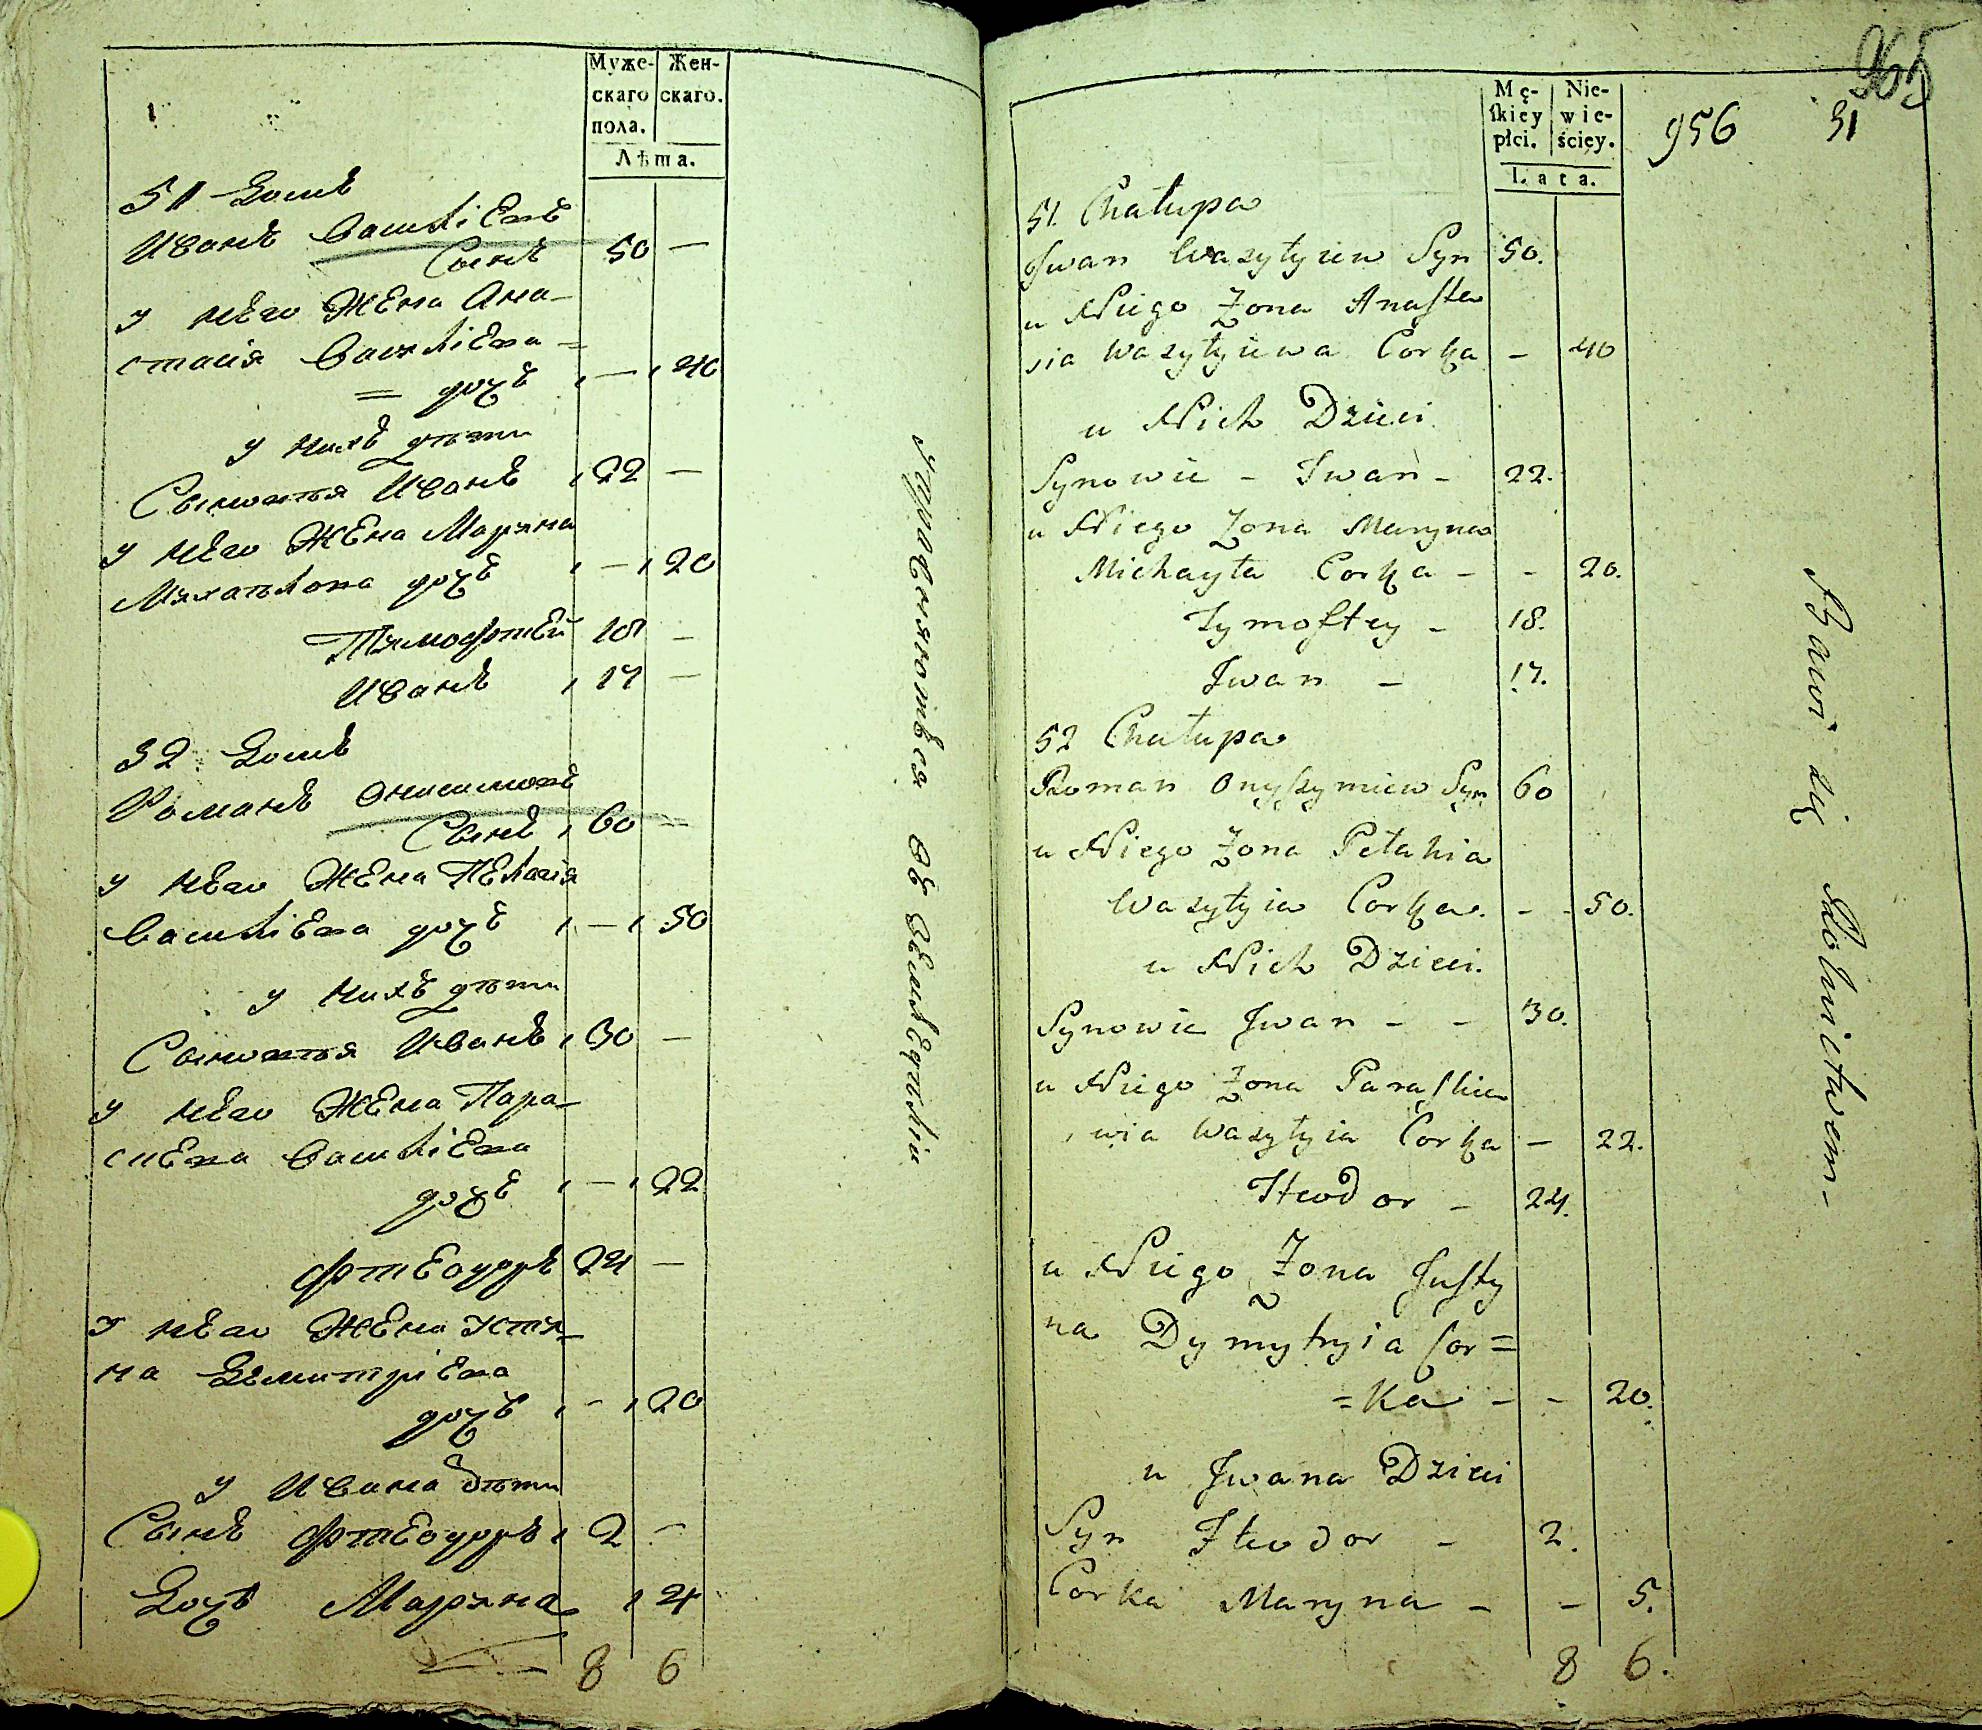 Муже- Жен-
скаго скаго.
пола.
Лѣта.
51 Домъ
Иванъ Василіевъ
Сынъ 50 —
у него жена Ана-
стасія Василіева =
= дочь — 40
у нихъ дѣти
Сыновья Иванъ 22 —
у него жена Марина
Михайлова дочь — 20
Тимофтей 18 —
Иванъ 17 —
52 Домъ
Романъ Онисимовъ
Сынъ 60 —
у него жена Пелагія
Василіева дочь — 50
у нихъ дѣти
Сыновья Иванъ 30 —
у него жена Пара-
скева Василіева
дочь — 22
Фтеодоръ 24 —
у него жена Усти-
на Демитріева
дочь — 20
у Ивана дѣти
Сынъ Фтеодоръ 2 —
Дочь Марина 4
8 6
въ Земледѣліи
965
956 51
Mę- Nie-
skiey wie-
płci. ściey.
Lata.
51. Chałupa
Jwan Wasylyiew Syn 50.
u Niego Zona Anasta
sia Wasylyiewa Corka — 40
u Nich Dzieci
Synowie - Jwan - 22.
u Niego Zona Maryna
Michayła Corka - - 20.
Tymoftey - 18.
Jwan - 17.
52 Chałupa
Roman Onyszymiew Syn 60
u Niego Zona Pelahia
Wasylyia Corka. - - 50.
u Nich Dzieci.
Synowie Jwan - - 30.
u Niego Zona Paraskie
wia Wasylyia Corka — 22.
Fteodor - 24.
u Niego Zona Justy
na Dymytryia Cor=
=ka - - 20.
u Jwana Dzieci
Syn Fteodor - 2.
Corka Maryna - - 5.
8 6.
Bawi się Rolnictwem-